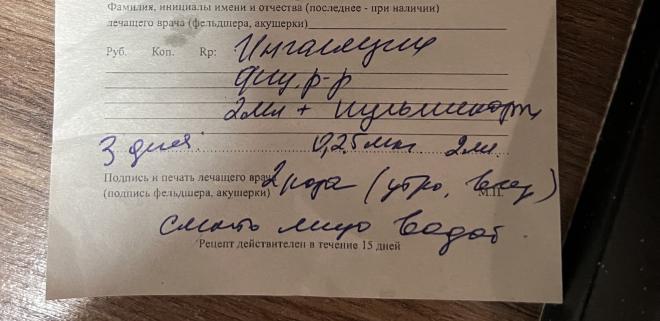 Фамилия, инициалы имени и отчества (последнее - при наличии)
лечащего врача (фельдшера, акушерки)
Руб. Коп. Rp: Ингаляции
физ. р-р
2мл + пульмикорт
3 дня. 0,25мкг. 2мл.
Подпись и печать лечащего врача
(подпись фельдшера, акушерки) 2 раза (утро, вечер) М.П.
смыть лицо водой.
Рецепт действителен в течение 15 дней